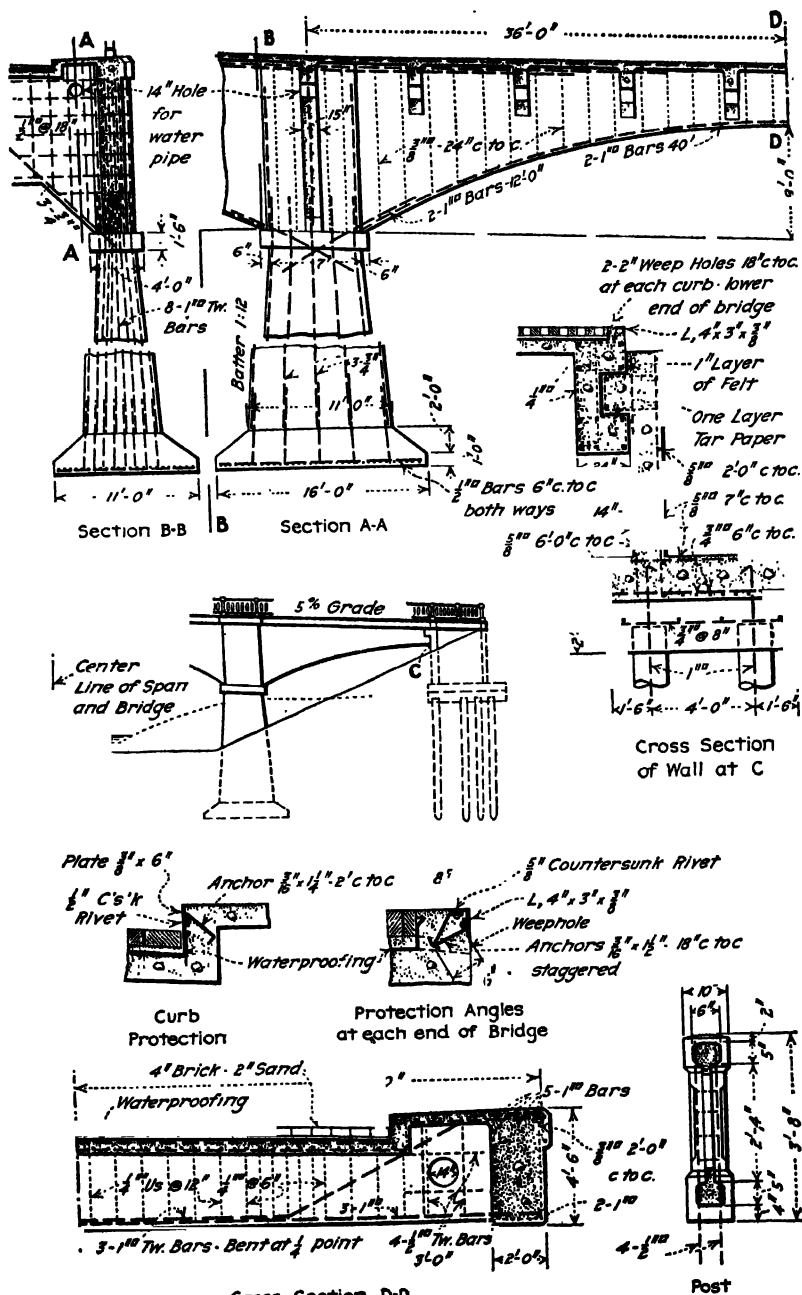 A
H
B
36'-0"
D
14" Hole
for
water
pipe
15"
3/8"□-24" c to c.
2-1"□ Bars 40'
2-1"□ Bars-12'-0"
D
9'-0"
1/2"□@18"
3-3/4"□
A
1'-6"
6"
6"
4'-0"
8-1"□ Tw.
Bars
Batter 1:12
3-3/4"
11'-0"
2'-0"
1'-0"
11'-0"
16'-0"
1/2"□ Bars 6" c. to c
both ways
Section B-B
B
Section A-A
2-2" Weep Holes 18" c to c.
at each curb-lower
end of bridge
L, 4" x 3" x 3/8"
1" Layer
of Felt
1/4"□
One Layer
Tar Paper
24"
5/8"□ 2'-0" c to c.
14"
5/8"□ 7" c to c.
5/8"□ 6'-0" c to c
3/4"□ 6" c to c.
3/4"□ @ 8"
2'
1"□
1'-6"
4'-0"
1'-6"
Cross Section
of Wall at C
5% Grade
Center
Line of Span
and Bridge
C
Plate 3/8" x 6"
1/2" C's'k
Rivet
Anchor 3/16" x 1 1/4"-2' c to c
Waterproofing
Curb
Protection
8"
5/8" Countersunk Rivet
L, 4" x 3" x 3/8"
Weephole
Anchors 3/16" x 1 1/2"- 18" c to c
staggered
Protection Angles
at each end of Bridge
4" Brick-2" Sand
Waterproofing
5-1"□ Bars
4'-6"
3/8"□ 2'-0"
c to c.
1/4"□ Us @ 12"
1/4"□ @ 6"
3-1"□
14"
2-1"□
3-1"□ Tw. Bars-Bent at 1/4 point
4-1/2"□ Tw. Bars
3'-0"
2'-0"
Cross Section D-D
10"
6"
2"
5"
2'-4"
3'-8"
5"
4"
4-1/2"□
Post